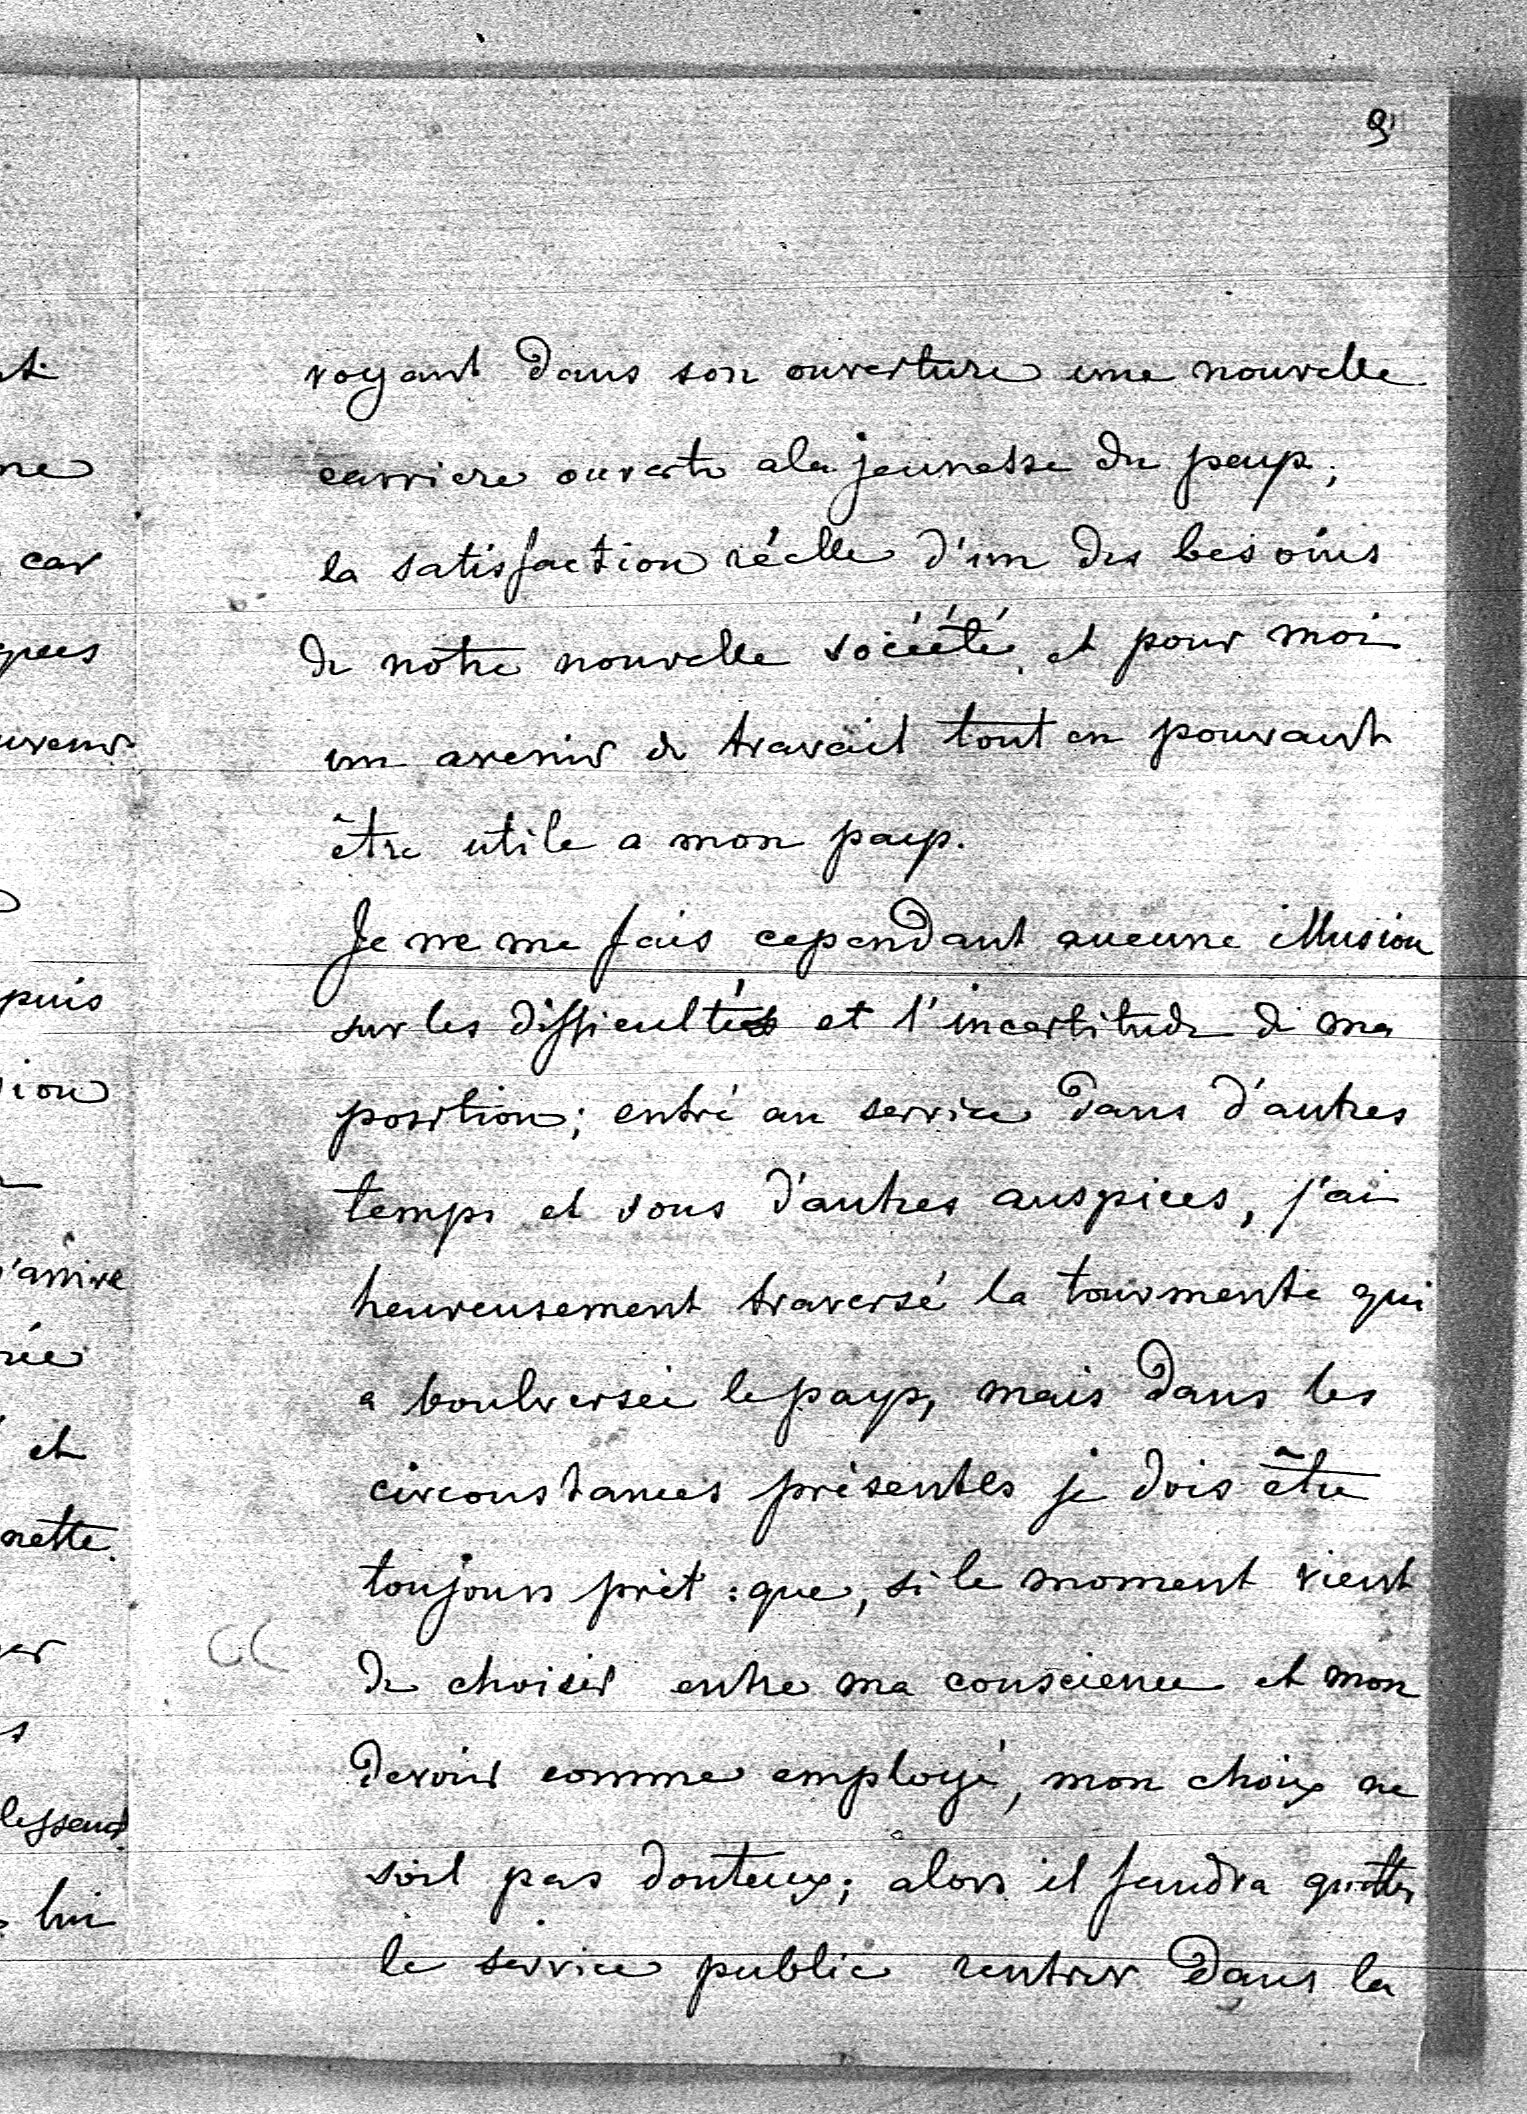 9
voyant dans son ouverture une nouvelle
carriere ouverte a la jeunesse du pays,
la satisfaction réelle d'un des besoins
de notre nouvelle sociéété, et pour moi
un avenir de travail tout en pouvant
être utile a mon pays.
Je ne me fais cependant aucune illusion
sur les difficultés et l'incertitude de ma
position; entré au service dans d'autres
temps et sous d'autres auspices, j'ai
heureusement traversé la tourmente qui
a boulverseé le pays, mais dans les
circonstances présentes je dois être
toujours prêt: que, si le moment vient
de choisir entre ma conscience et mon
devoir comme employé, mon choix ne
soit pas douteux; alors il faudra quitter
le service public rentrer dans la
car
puis
et
nette.
lui